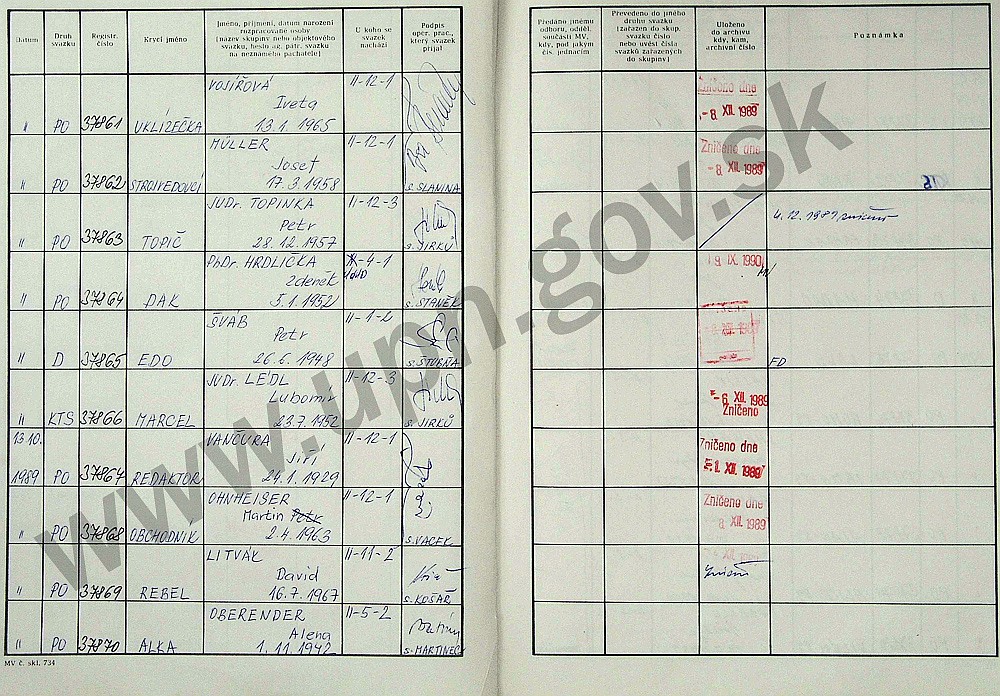 Datum
Druh
svazku
Registr.
číslo
Krycí jméno
Jméno, příjmení, datum narození
rozpracované osoby
(název skupiny nebo objektového
svazku, heslo ag. pátr. svazku
na neznámého pachatele)
U koho se
svazek
nachází
Podpis
oper. prac.,
který svazek
přijal
Předáno jinému
odboru, odděl.
součásti MV,
kdy, pod jakým
čís. jednacím
Převedeno do jiného
druhu svazku
(zařazen do skup.
svazku číslo
nebo uvést čísla
svazků zařazených
do skupiny)
Uloženo
do archivu
kdy, kam,
archivní číslo
Poznámka
VOJÍŘOVÁ II-12-1
Iveta
" PO 37861 UKLÍZEČKA 13.1.1965
Zničeno dne
-8. XII. 1989
MÜLLER II-12-1
Josef
" PO 37862 STROJVEDOUCÍ 17.3.1958 s. SLANINA
Zničeno dne
-8. XII. 1989
JUDr. TOPINKA II-12-3
Petr
" PO 37863 TOPIČ 28.12.1957 s. JIRKŮ
4.12.1989
PhDr. HRDLIČKA -4-1
Zdeněk
" PO 37864 DAK 5.1.1952 s. STANĚK
IX. 1990
ŠVÁB II-1-2
Petr
" D 37865 EDO 26.6.1948
FD
JUDr. LÉDL II-12-3
Lubomír
" KTS 37866 MARCEL 23.7.1952 s. JIRKŮ
-6. XII. 1989
Zničeno
13.10. VANČURA II-12-1
Jiří
1989 PO 37867 REDAKTOR 24.1.1929
Zničeno dne
-1. XII. 1989
OHNHEISER II-12-1
Martin Petr
" PO 37868 OBCHODNÍK 2.4.1963 s. VACEK
Zničeno dne
8. XII. 1989
LITVÁK II-11-2
David
" PO 37869 REBEL 16.7.1967 s. KOŠAŘ
OBERENDER II-5-2
Alena
" PO 37870 ALKA 1.11.1942 s. MARTINEC
MV č. skl. 734
www.upn.gov.sk